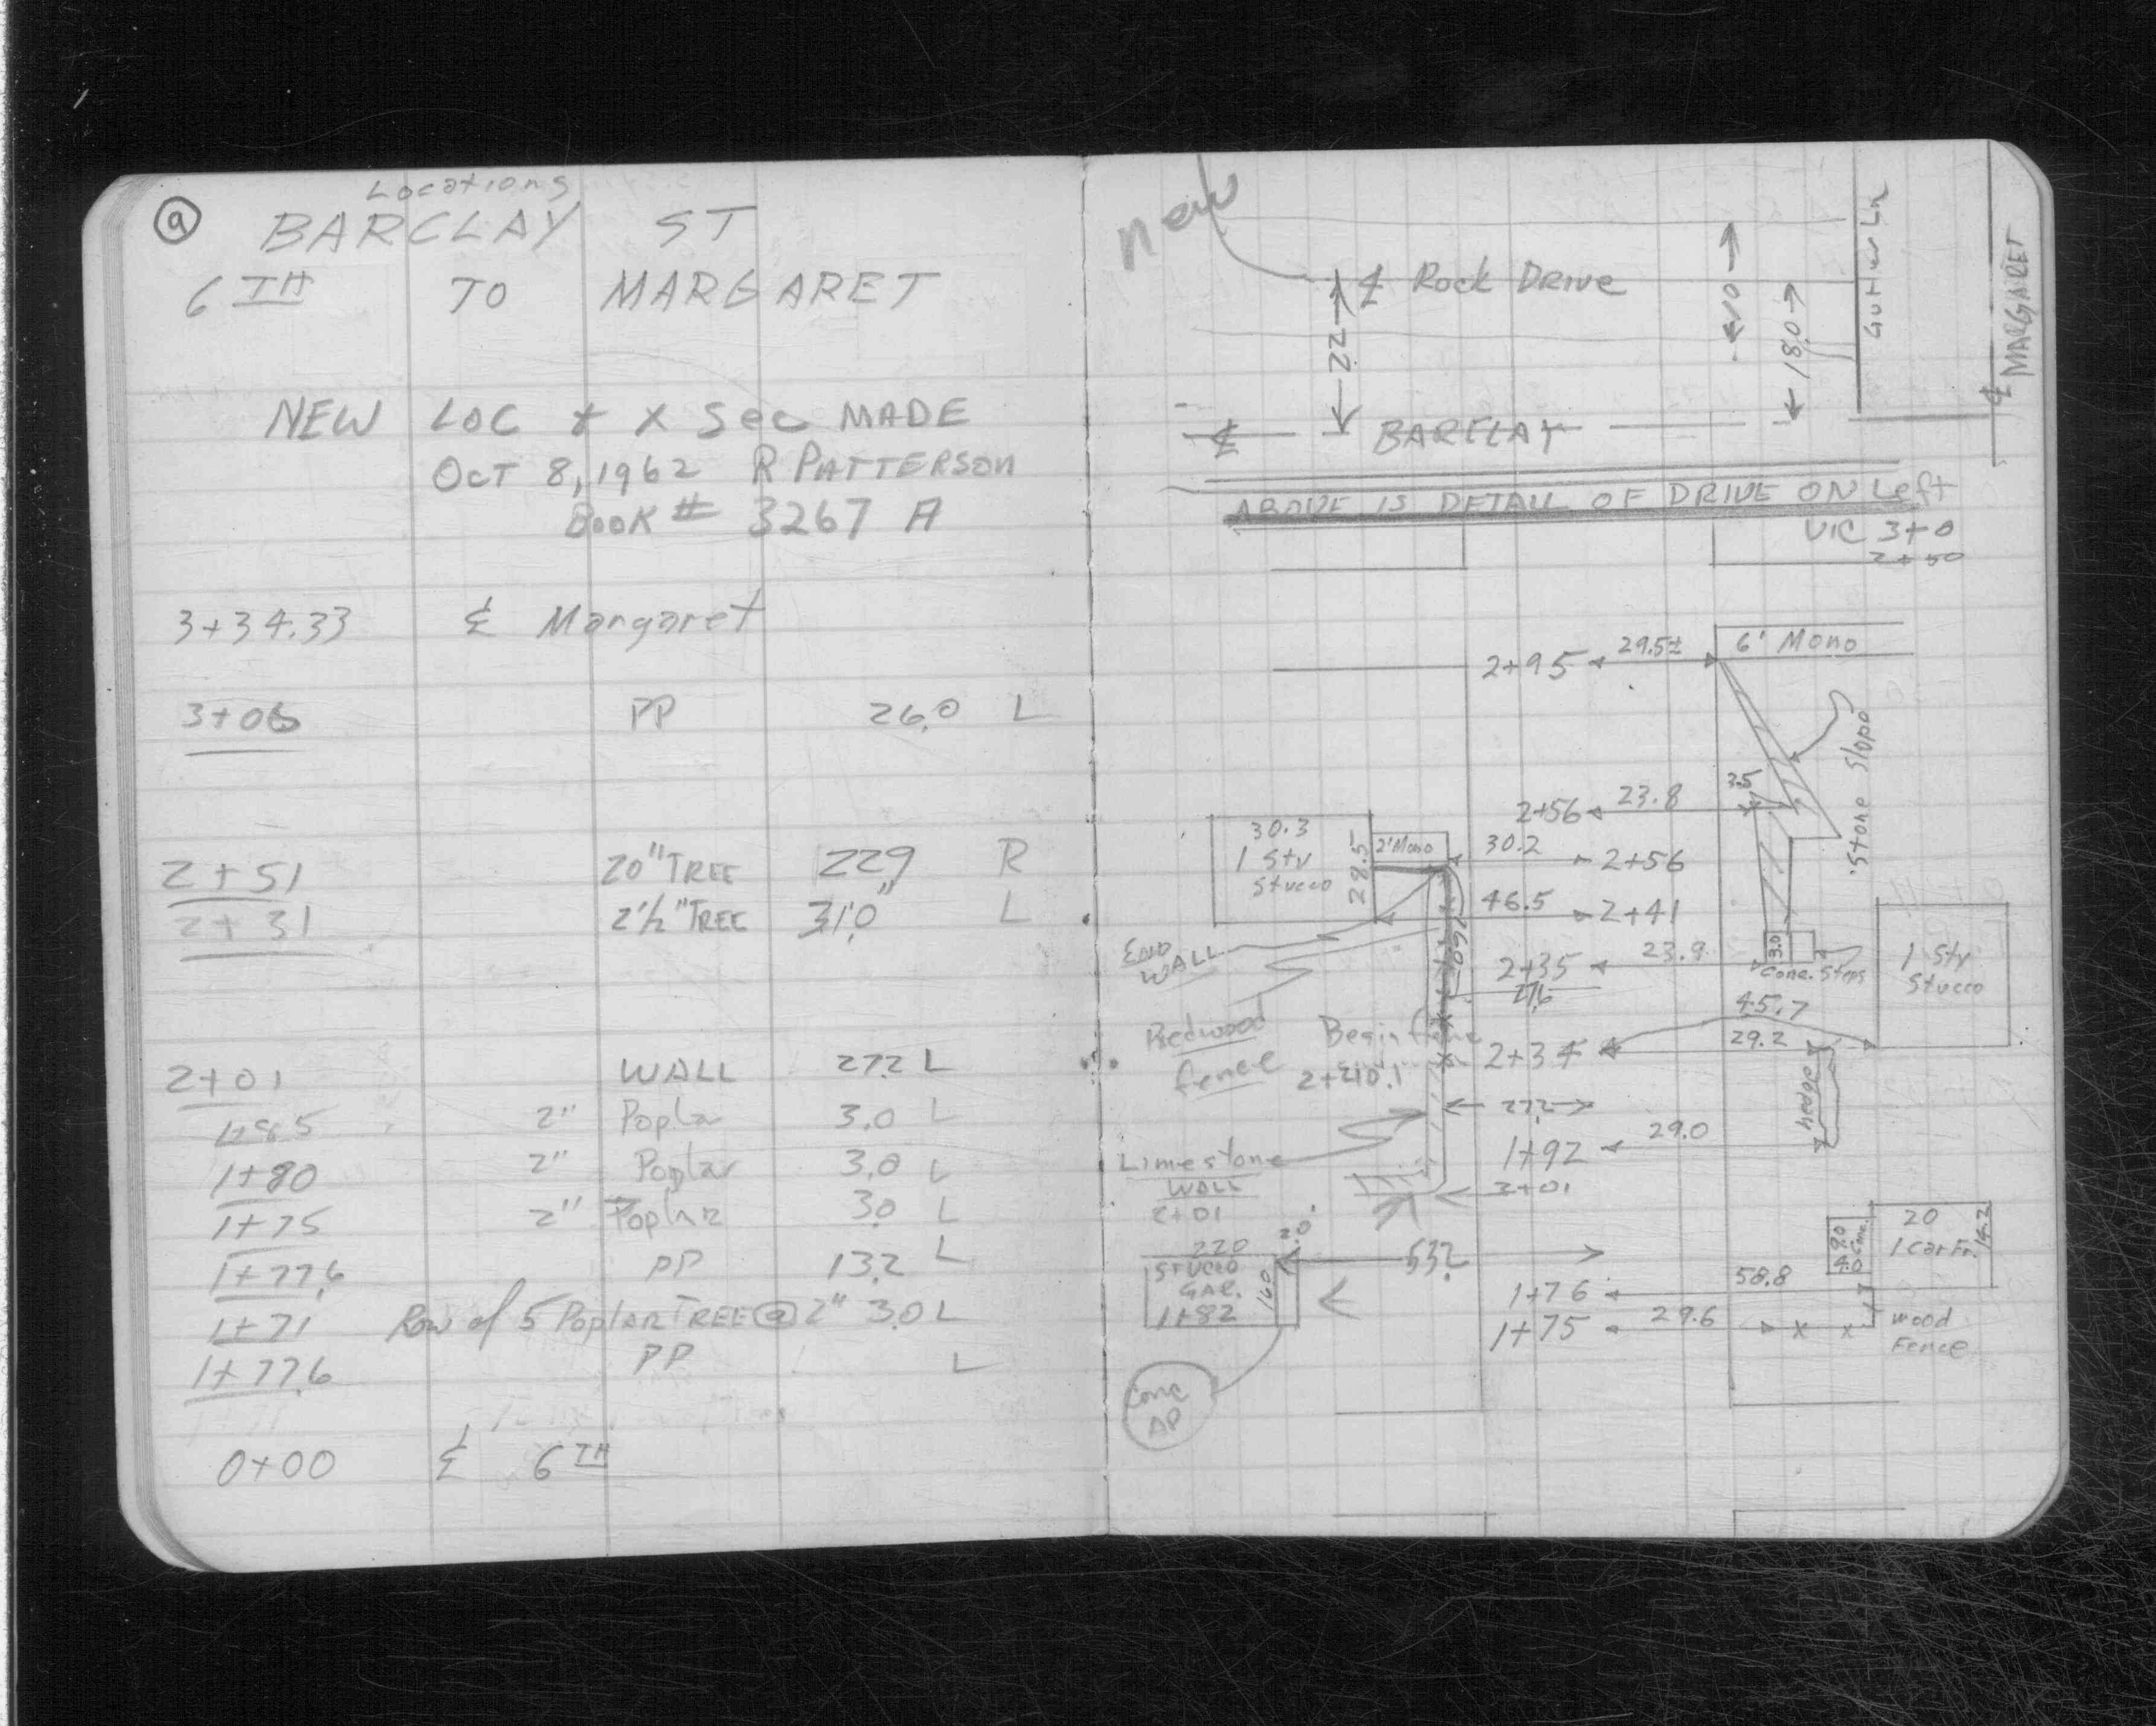 9
Locations
BARCLAY ST
6TH TO MARGARET
NEW LOC + X Sec MADE
OCT 8, 1962 R PATTERSON
BOOK # 3267 A
3+34.33 ℄ Margaret
3+06 PP 26.0 L
2+51 20" TREE 22.9 R
2+31 2½" TREE 31.0 L
2+01 WALL 27.2 L
1+85 2" Popla 3.0 L
1+80 2" Poplar 3.0 L
1+75 2" Poplar 3.0 L
1+77.6 PP 13.2 L
1+71 Row of 5 Poplar TREE @ 2" 3.0 L
1+77.6 PP L
0+00 ℄ 6TH
New
℄ Rock Drive
22
10
18.0
Gutter Ln
℄ MARGARET
℄ BARCLAY
ABOVE IS DETAIL OF DRIVE ON Left
VIC 3+0
2+50
2+95 29.5± 6' Mono
Stone Slope
2+56 23.8 3.5
30.3
1 Sty
Stucco
28.5
2' Mono
30.2 2+56
46.5 2+41
END
WALL
2+35 23.9 3.0
Conc. Steps
27.6
1 Sty
Stucco
45.7
Redwood
fence
Begin fence
2+34 29.2
hedge
27.2
1+92 29.0
Limestone
WALL
2+01
2+01
22.0
STUCCO
GAR.
1+82
16.0
2.0'
53.2
20
1 Car Fr.
14.2
Conc.
1+76 58.8
1+75 29.6
Wood
Fence
Conc
AP